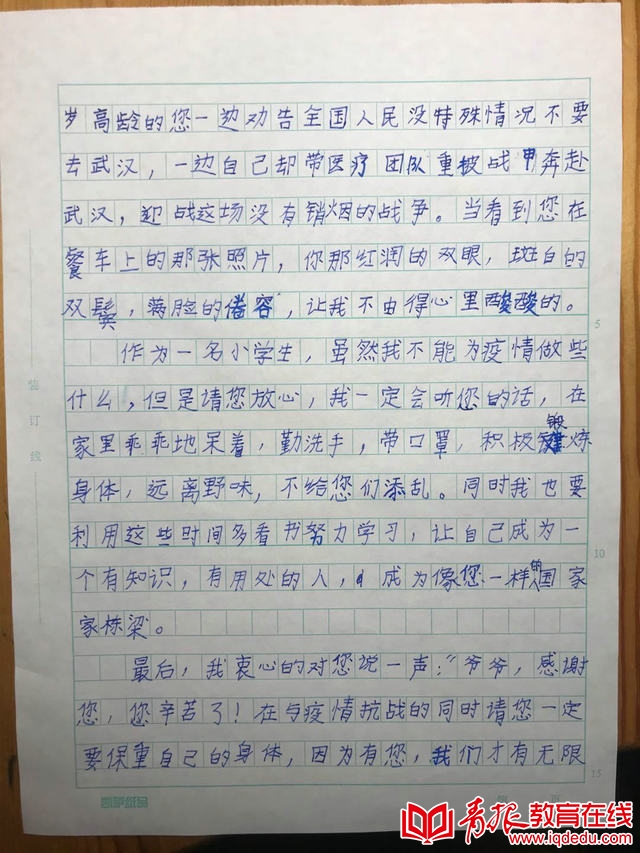 岁高龄的您一边劝告全国人民没特殊情况不要
去武汉，一边自己却带医疗团队重披战甲奔赴
武汉，迎战这场没有销烟的战争。当看到您在
餐车上的那张照片，你那红润的双眼，斑白的
双鬓，满脸的倦容，让我不由得心里酸酸的。
作为一名小学生，虽然我不能为疫情做些
什么，但是请您放心，我一定会听您的话，在
家里乖乖地呆着，勤洗手，带口罩，积极锻炼
身体，远离野味，不给您们添乱。同时我也要
利用这些时间多看书努力学习，让自己成为一
个有知识，有用处的人，成为像您一样的国家
家栋梁。
最后，我衷心的对您说一声："爷爷，感谢
您，您辛苦了！在与疫情抗战的同时请您一定
要保重自己的身体，因为有您，我们才有无限
装订线
5
10
15
凯萨纸品
青报教育在线
www.iqdedu.com